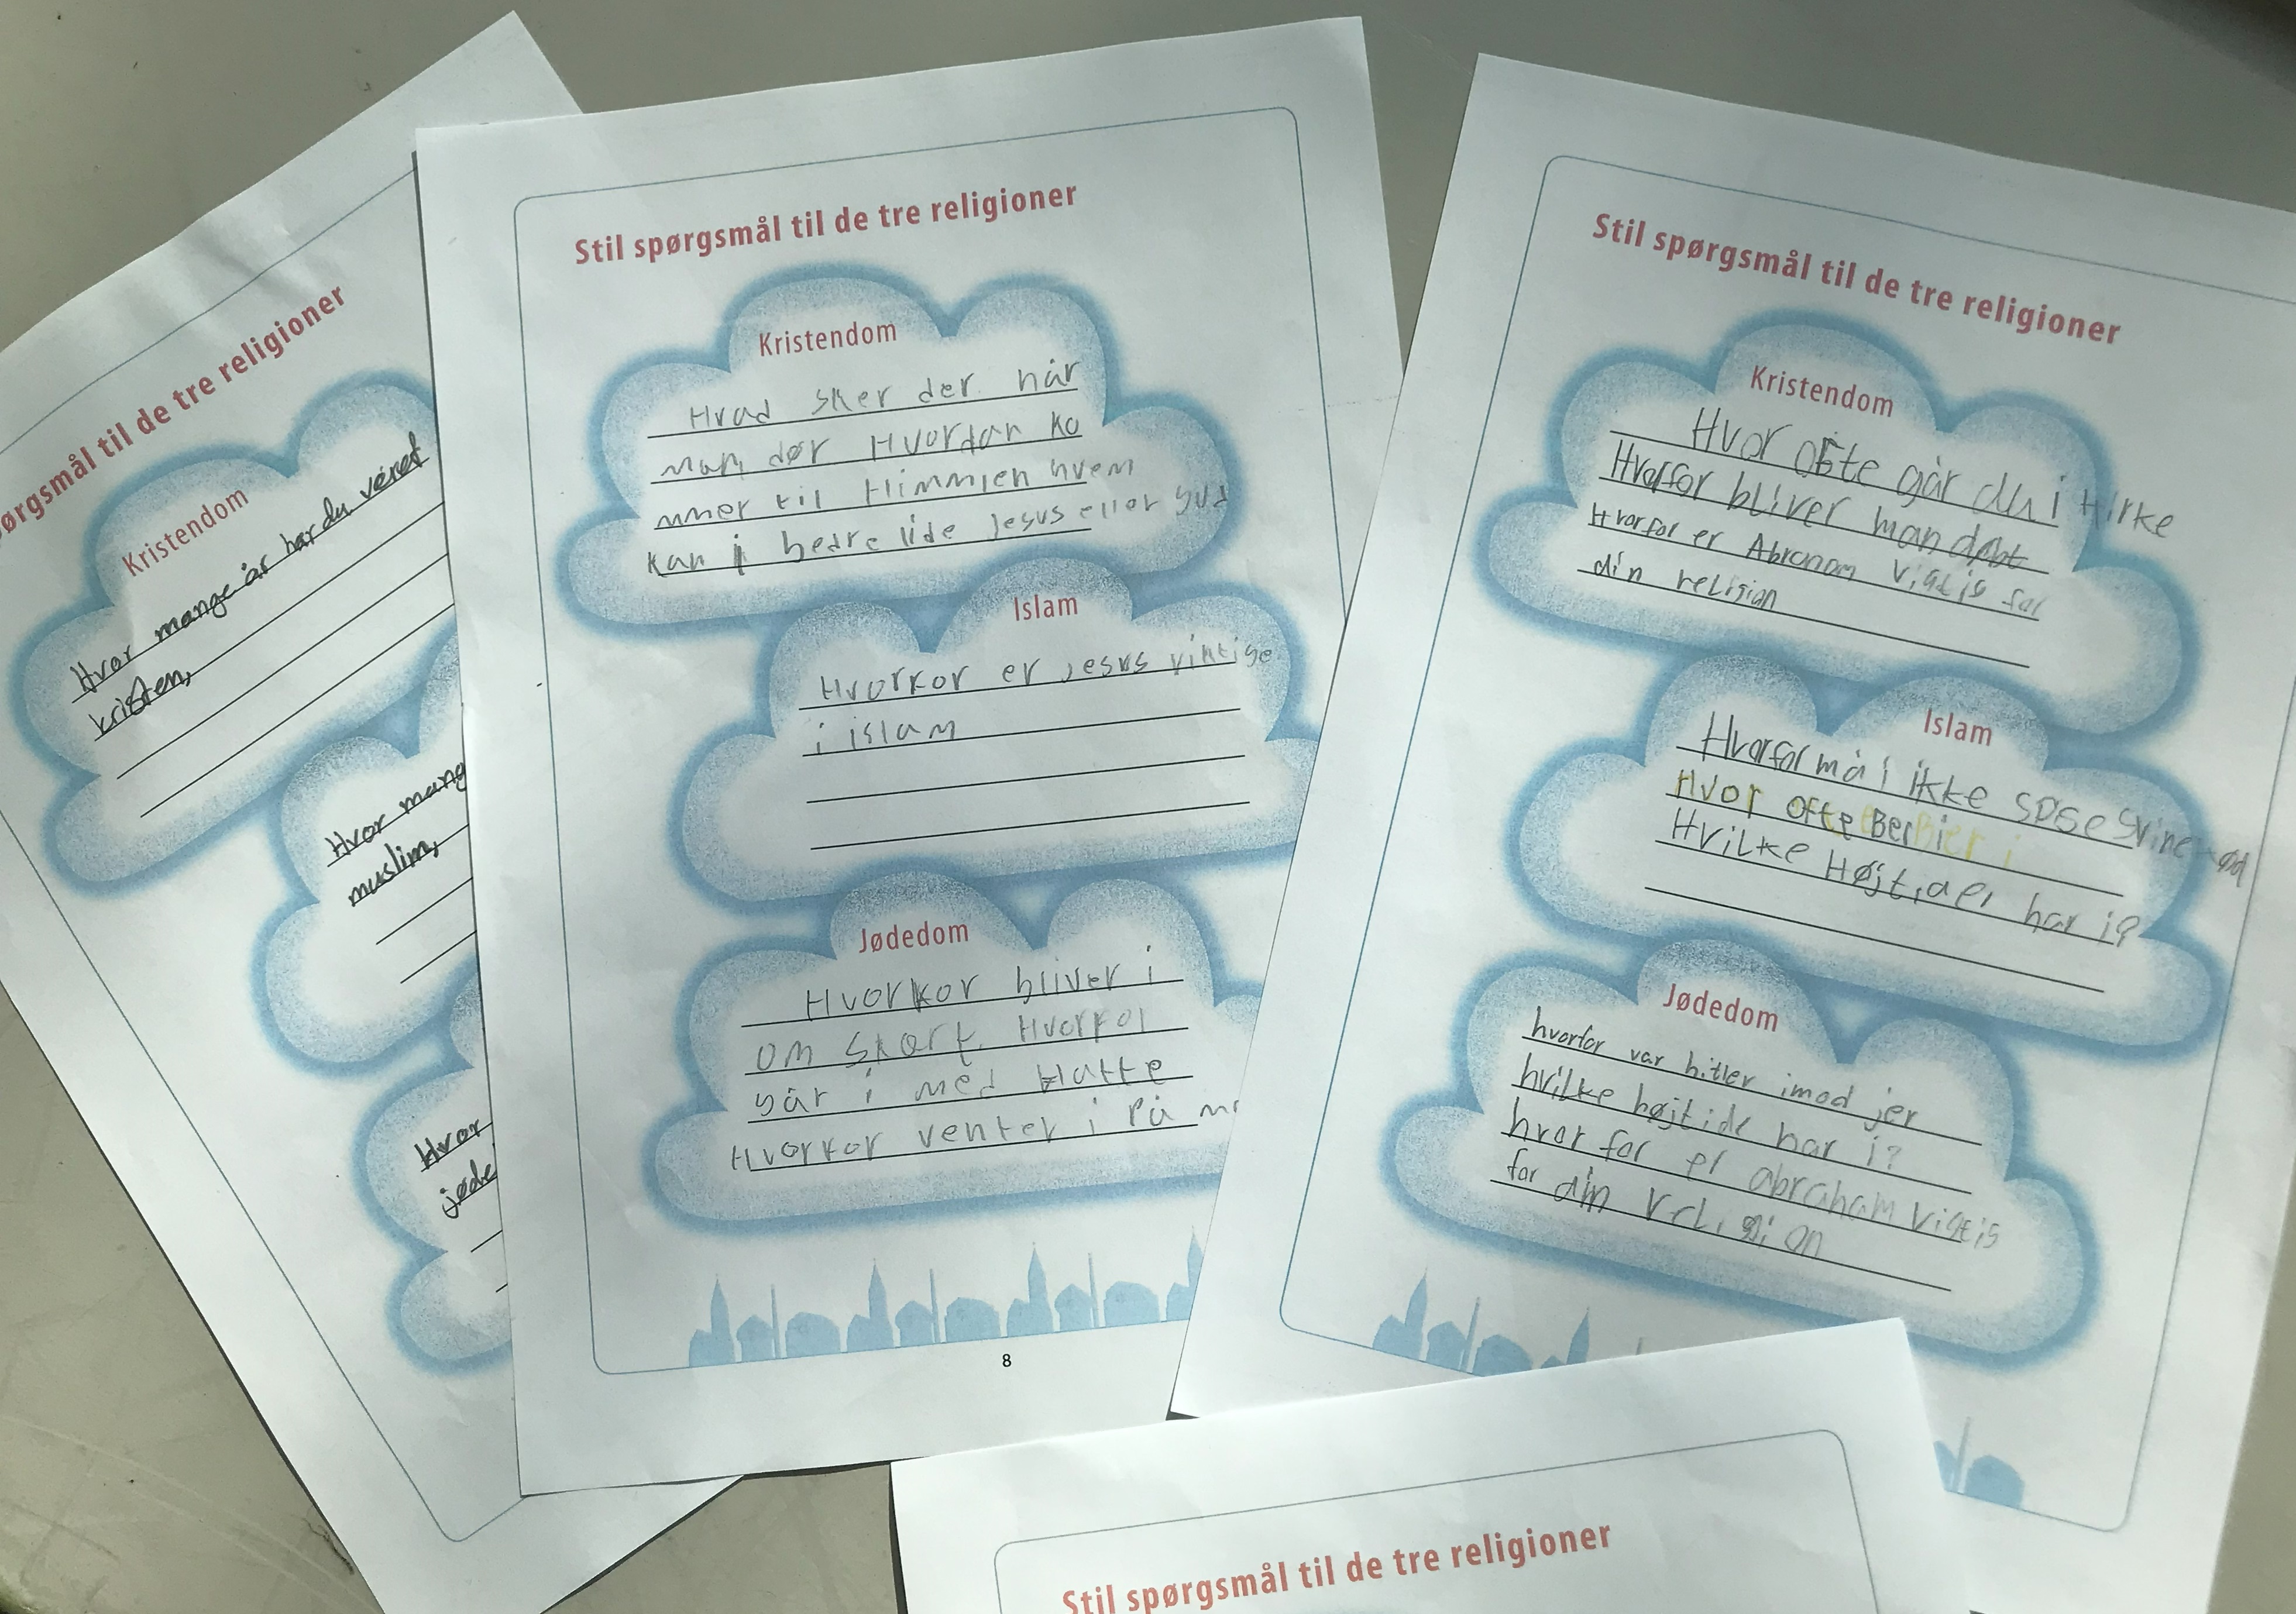 ørgsmål til de tre religioner
Kristendom
Hvor mange år har du været
kristen,
Hvor mang
muslim,
Hvor
jøde
Stil spørgsmål til de tre religioner
Kristendom
Hvad sker der når
man dør Hvordan ko
mmer til Himmlen hvem
kan i bedre lide Jesus eller gud
Islam
Hvorkor er Jesus viktige
i islam
Jødedom
Hvorkor bliver i
om skort. Hvorkor
går i med Hatte
Hvorkor venter i På
8
Stil spørgsmål til de tre religioner
Kristendom
Hvor ofte går du i kirke
Hvorfor bliver man døbt
Hvorfor er Abraham vigtig for
din religion
Islam
Hvorfor må i ikke spise svinekød
Hvor ofte Ber i
Hvilke Højtider har i?
Jødedom
hvorfor var hitler imod jer
hvilke højtide har i?
hvor for er abraham vigtig
for din religion
Stil spørgsmål til de tre religioner